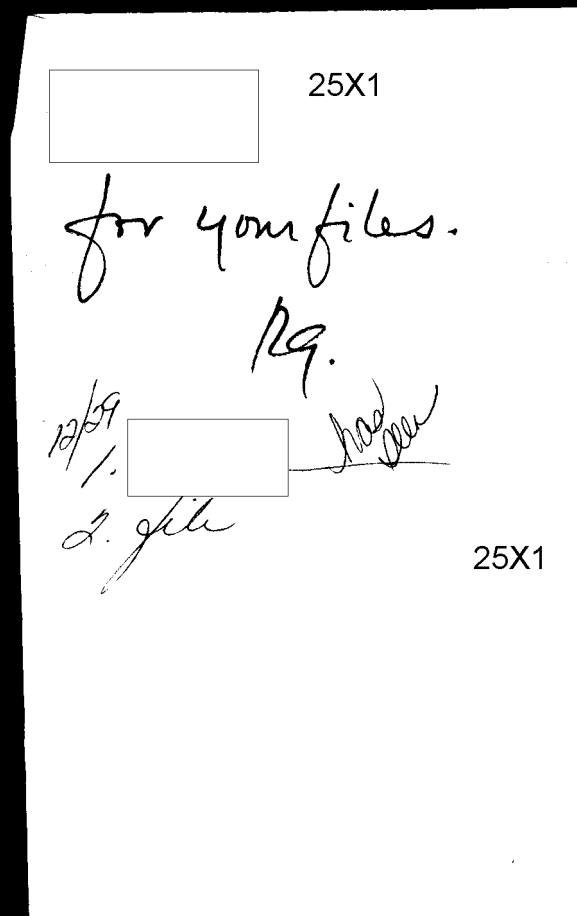 25X1
for your files.
RG.
12/29
1. has seen
2. file
25X1